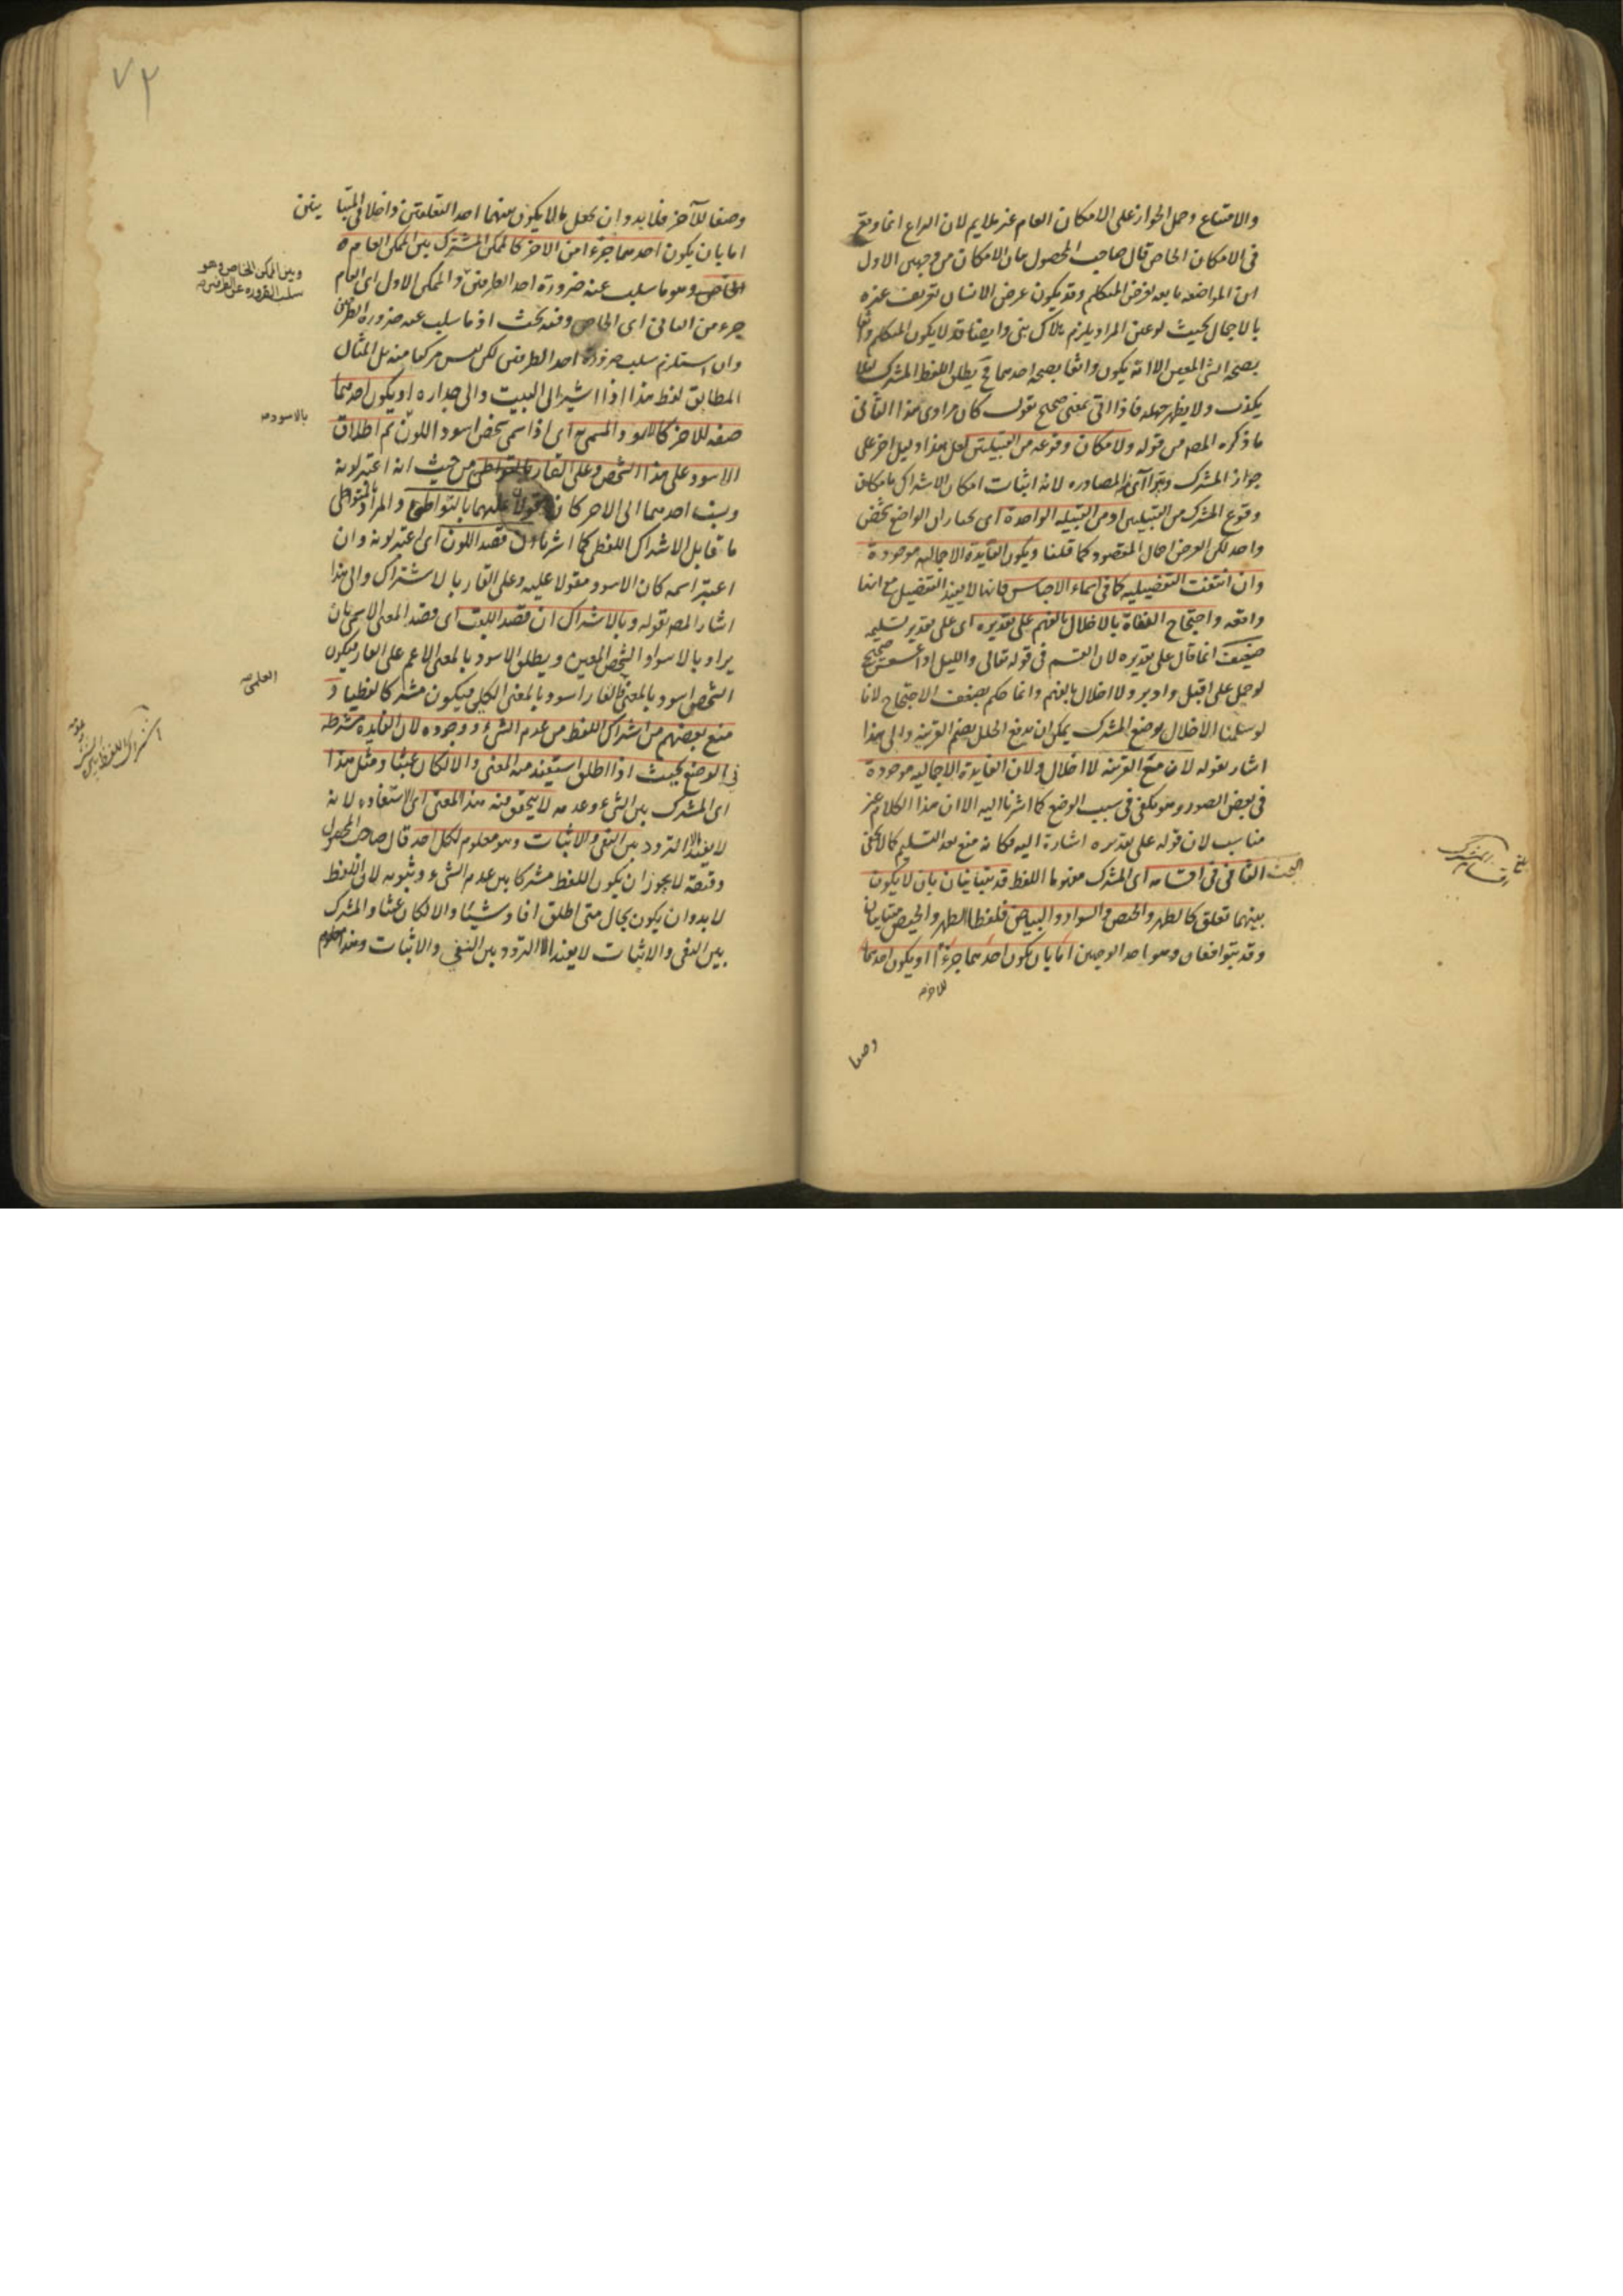 والامتناع وحمل الجواز على الامكان العام غير ملايم لان النزاع انما وقع
فى الامكان الخاص قال صاحب المحصول بيان الامكان من وجهين الاول
ان المواضعه تابعه لغرض المتكلم وقد يكون غرض الانسان تعريف غيره
بالاجمال بحيث لو عين المراد يلزم هلاك بنى وايضا قد لا يكون المتكلم واثقا
بصحه الشى المعين الا انه يكون واثقا بصحه احدهما فح يطلق اللفظ المشترك لئلا
يكذب ولا يظهر جهله فاذا اتى بمعنى صحيح يقول كان مرادى هذا الثانى
ما ذكره المص من قوله ولامكان وقوعه من القبيلتين لعل هذا دليل اخر على
جواز المشترك المصادره لانه اثبات امكان الاشتراك بامكان
وقوع المشترك من القبيلتين او من القبيله الواحدة اى الواضع شخص
واحد لكن الغرض اجمال المقصود كما قلنا ويكون الفايدة الاجماليه موجودة
وان انتفت التفصيليه كما فى اسماء الاجناس فانها لا يفيد التفصيل مع انها
واقعه واحتجاج النفاة بالاخلال بالفهم على تقديره اى على تقدير تسليمه
ضعيف انما قال على تقديره لان القسم فى قوله تعالى والليل اذا عسعس صحيح
لو حمل على اقبل وادبر ولا اخلال بالفهم وانما حكم بضعف الاحتجاج لانا
لو سلمنا الاخلال بوضع المشترك يمكن ان يدفع الخلل بضم القرينه والى هذا
اشار بقوله لان مع القرينه لا اخلال ولان الفايدة الاجماليه موجودة
فى بعض الصور وهو يكفى فى سبب الوضع كما اشرنا اليه الا ان هذا الكلام غير
مناسب لان قوله على تقديره اشارة اليه فكانه منع بعد التسليم كما لا يخفى
البحث الثانى فى اقسامه اى المشترك مفهوما اللفظ قد يتباينان بان لا يكون
بينهما تعلق كالطهر والحيض والسواد والبياض فلفظا الطهر والحيض متباينان
وقد يتوافقان وهو احد الوجهين اما بان يكون احدهما جزءا او يكون احدهما
للاخر
وصفا
اقسام المشترك
٧٢
وصفا للآخر فلا بد وان يجعل ما لا يكون بينهما احد التعلقين داخلا فى المتباينين
اما بان يكون احدهما جزءا من الاخر كالممكن المشترك بين الممكن العام
الخاص وهو ما سلب عنه ضرورة احد الطرفين والممكن الاول اى العام
جزء من الثانى اى الخاص وفيه بحث اذ ما سلب عنه ضروره الطرفين
وان استلزم سلب ضرورة احد الطرفين لكن ليس مركبا منه بل المثال
المطابق لفظ هذا اذا اشير الى البيت والى جداره او يكون احدهما
صفه للاخر كالاسود المسمى به اى اذا سمى شخص اسود اللون ثم اطلاق
الاسود على هذا الشخص وعلى القار بالتواطى من حيث انه اعتبر لونه
ونسب احدهما الى الاخر كان مقولا عليهما بالتواطى والمراد بالتواطى
ما قابل الاشتراك اللفظى كما اشرنا ان قصد اللون اى اعتبر لونه وان
اعتبر اسمه كان الاسود مقولا عليه وعلى القار بالاشتراك والى هذا
اشار المص بقوله وبالاشتراك ان قصد اللقب اى قصد المعنى الاسمى بان
يراد بالاسود الشخص المعين ويطلق الاسود بالمعنى الاعم على القار فيكون
الشخص اسود بالمعنى والقار اسود بالمعنى الكلى فيكون مشتركا لفظيا و
منع بعضهم من اشتراك اللفظ من عدم الشىء ووجوده لان الفايده شرطه
فى الوضع بحيث اذا اطلق استفيد منه المعنى والا لكان عبثا ومثل هذا
اى المشترك بين الشىء وعدمه لا يتحقق فيه هذا المعنى اى الاستفاده لانه
لا يفيد الا التردد بين النفى والاثبات وهو معلوم لكل احد قال صاحب المحصول
وقيقة لا يجوز ان يكون اللفظ مشتركا بين عدم الشىء وثبوته لان اللفظ
لا بد وان يكون بحال متى اطلق افاد شيئا والا لكان عبثا والمشترك
بين النفى والاثبات لا يفيد الا التردد بين النفى والاثبات وهذا معلوم
وبين الممكن الخاص وهو
سلب الضروره عن الطرفين
بالاسود
العلمى
اشتراك اللفظ بين